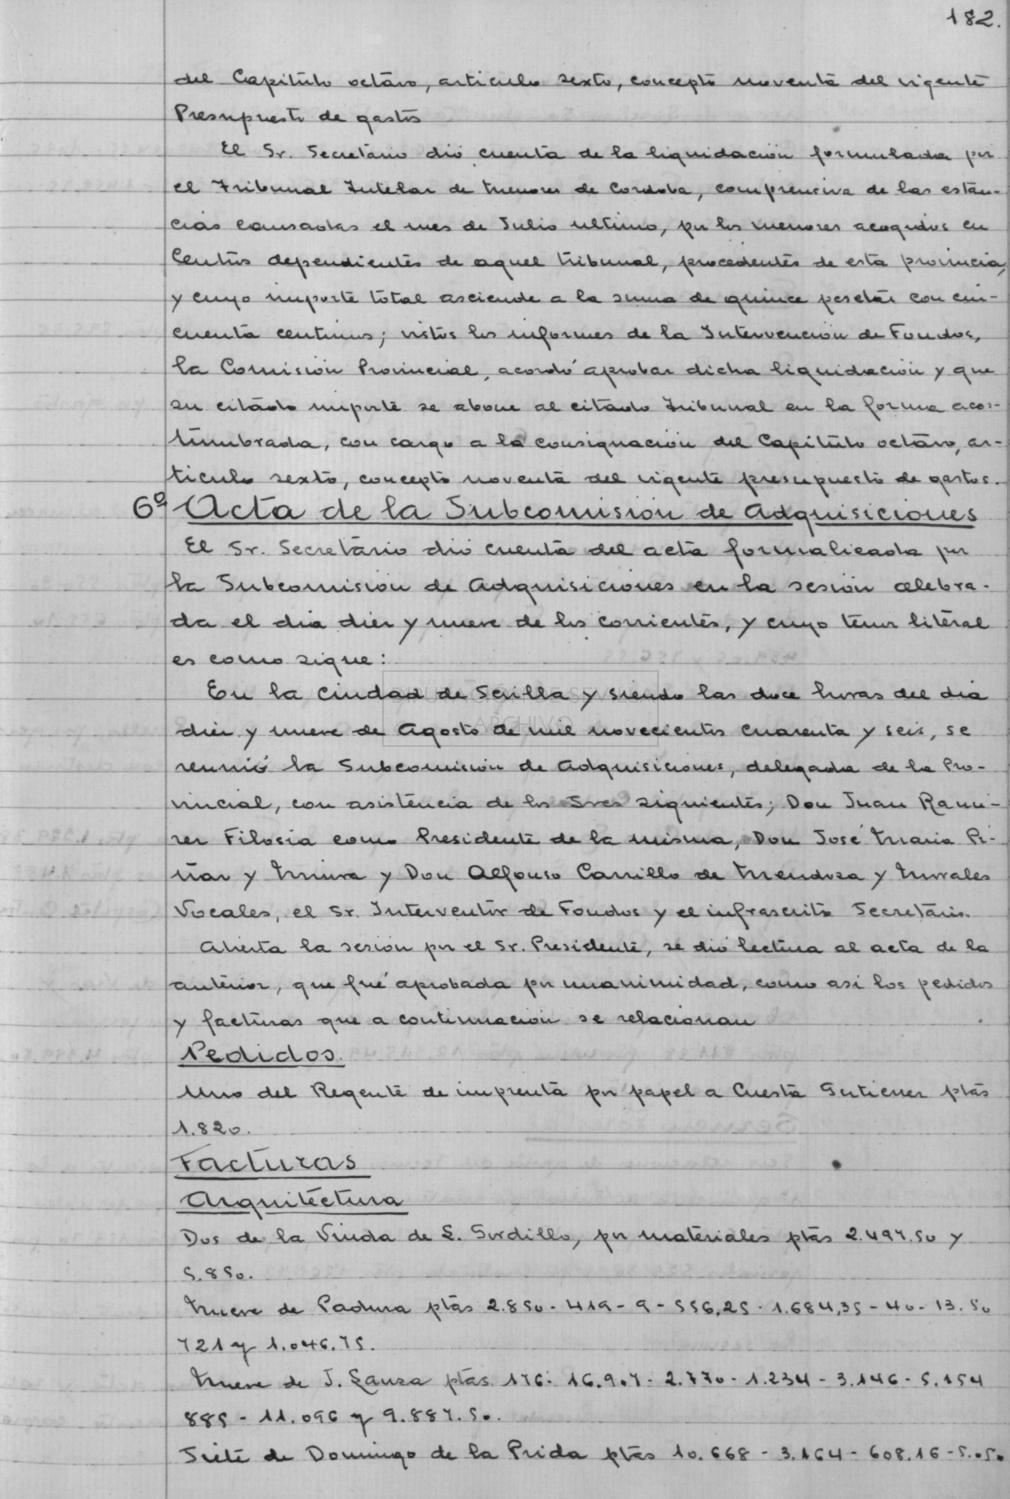 182.
del Capitulo octavo, articulo sexto, concepto noventa del vigente
Presupuesto de gastos
El Sr. Secretario dió cuenta de la liquidacion formulada por
el Tribunal Tutelar de Menores de Cordoba, comprensiva de las estan-
cias causadas el mes de Julio ultimo, por los menores acogidos en
Centros dependientes de aquel tribunal, procedentes de esta provincia,
y cuyo importe total asciende a la suma de quince pesetas con cin-
cuenta centimos; vistos los informes de la Intervencion de Fondos,
la Comision Provincial, acordó aprobar dicha liquidacion y que
su citado importe se abone al citado Tribunal en la forma acos-
tumbrada, con cargo a la consignacion del Capitulo octavo, ar-
ticulo sexto, concepto noventa del vigente presupuesto de gastos.
6º Acta de la Subcomision de Adquisiciones
El Sr. Secretario dió cuenta del acta formalizada por
la Subcomision de Adquisiciones en la sesión celebra-
da el dia diez y nueve de los corrientes, y cuyo tenor literal
es como sigue:
En la Ciudad de Sevilla y siendo las doce horas del dia
diez y nueve de Agosto de mil novecientos cuarenta y seis, se
reunió la Subcomision de Adquisiciones, delegada de la Pro-
vincial, con asistencia de los Sres siguientes; Don Juan Rami-
rez Filosia como Presidente de la misma, Don José Maria Pi-
ñar y Miura y Don Alfonso Carrillo de Mendoza y Morales
Vocales, el Sr. Interventor de Fondos y el infrascrito Secretario.
Abierta la sesion por el Sr. Presidente, se dió lectura al acta de la
anterior, que fué aprobada por unanimidad, como asi los pedidos
y facturas que a continuacion se relacionan
Pedidos.
Uno del Regente de imprenta por papel a Cuesta Gutierrez ptas
1.820.
Facturas
Arquitectura
Dos de la Viuda de L. Gordillo, por materiales ptas 2.497.50 y
5.850.
Nueve de Padura ptas 2.850 - 419 - 9 - 556,25 - 1.684,35 - 40 - 13.50
721 y 1.046.75.
Nueve de J. Lanza ptas. 176 - 16.907 - 2.770 - 1.234 - 3.146 - 5.154
885 - 11.096 y 9.887.50.
Siete de Domingo de la Prida ptas 10.668 - 3.164 - 608.16 - 5.050
ARCHIVO